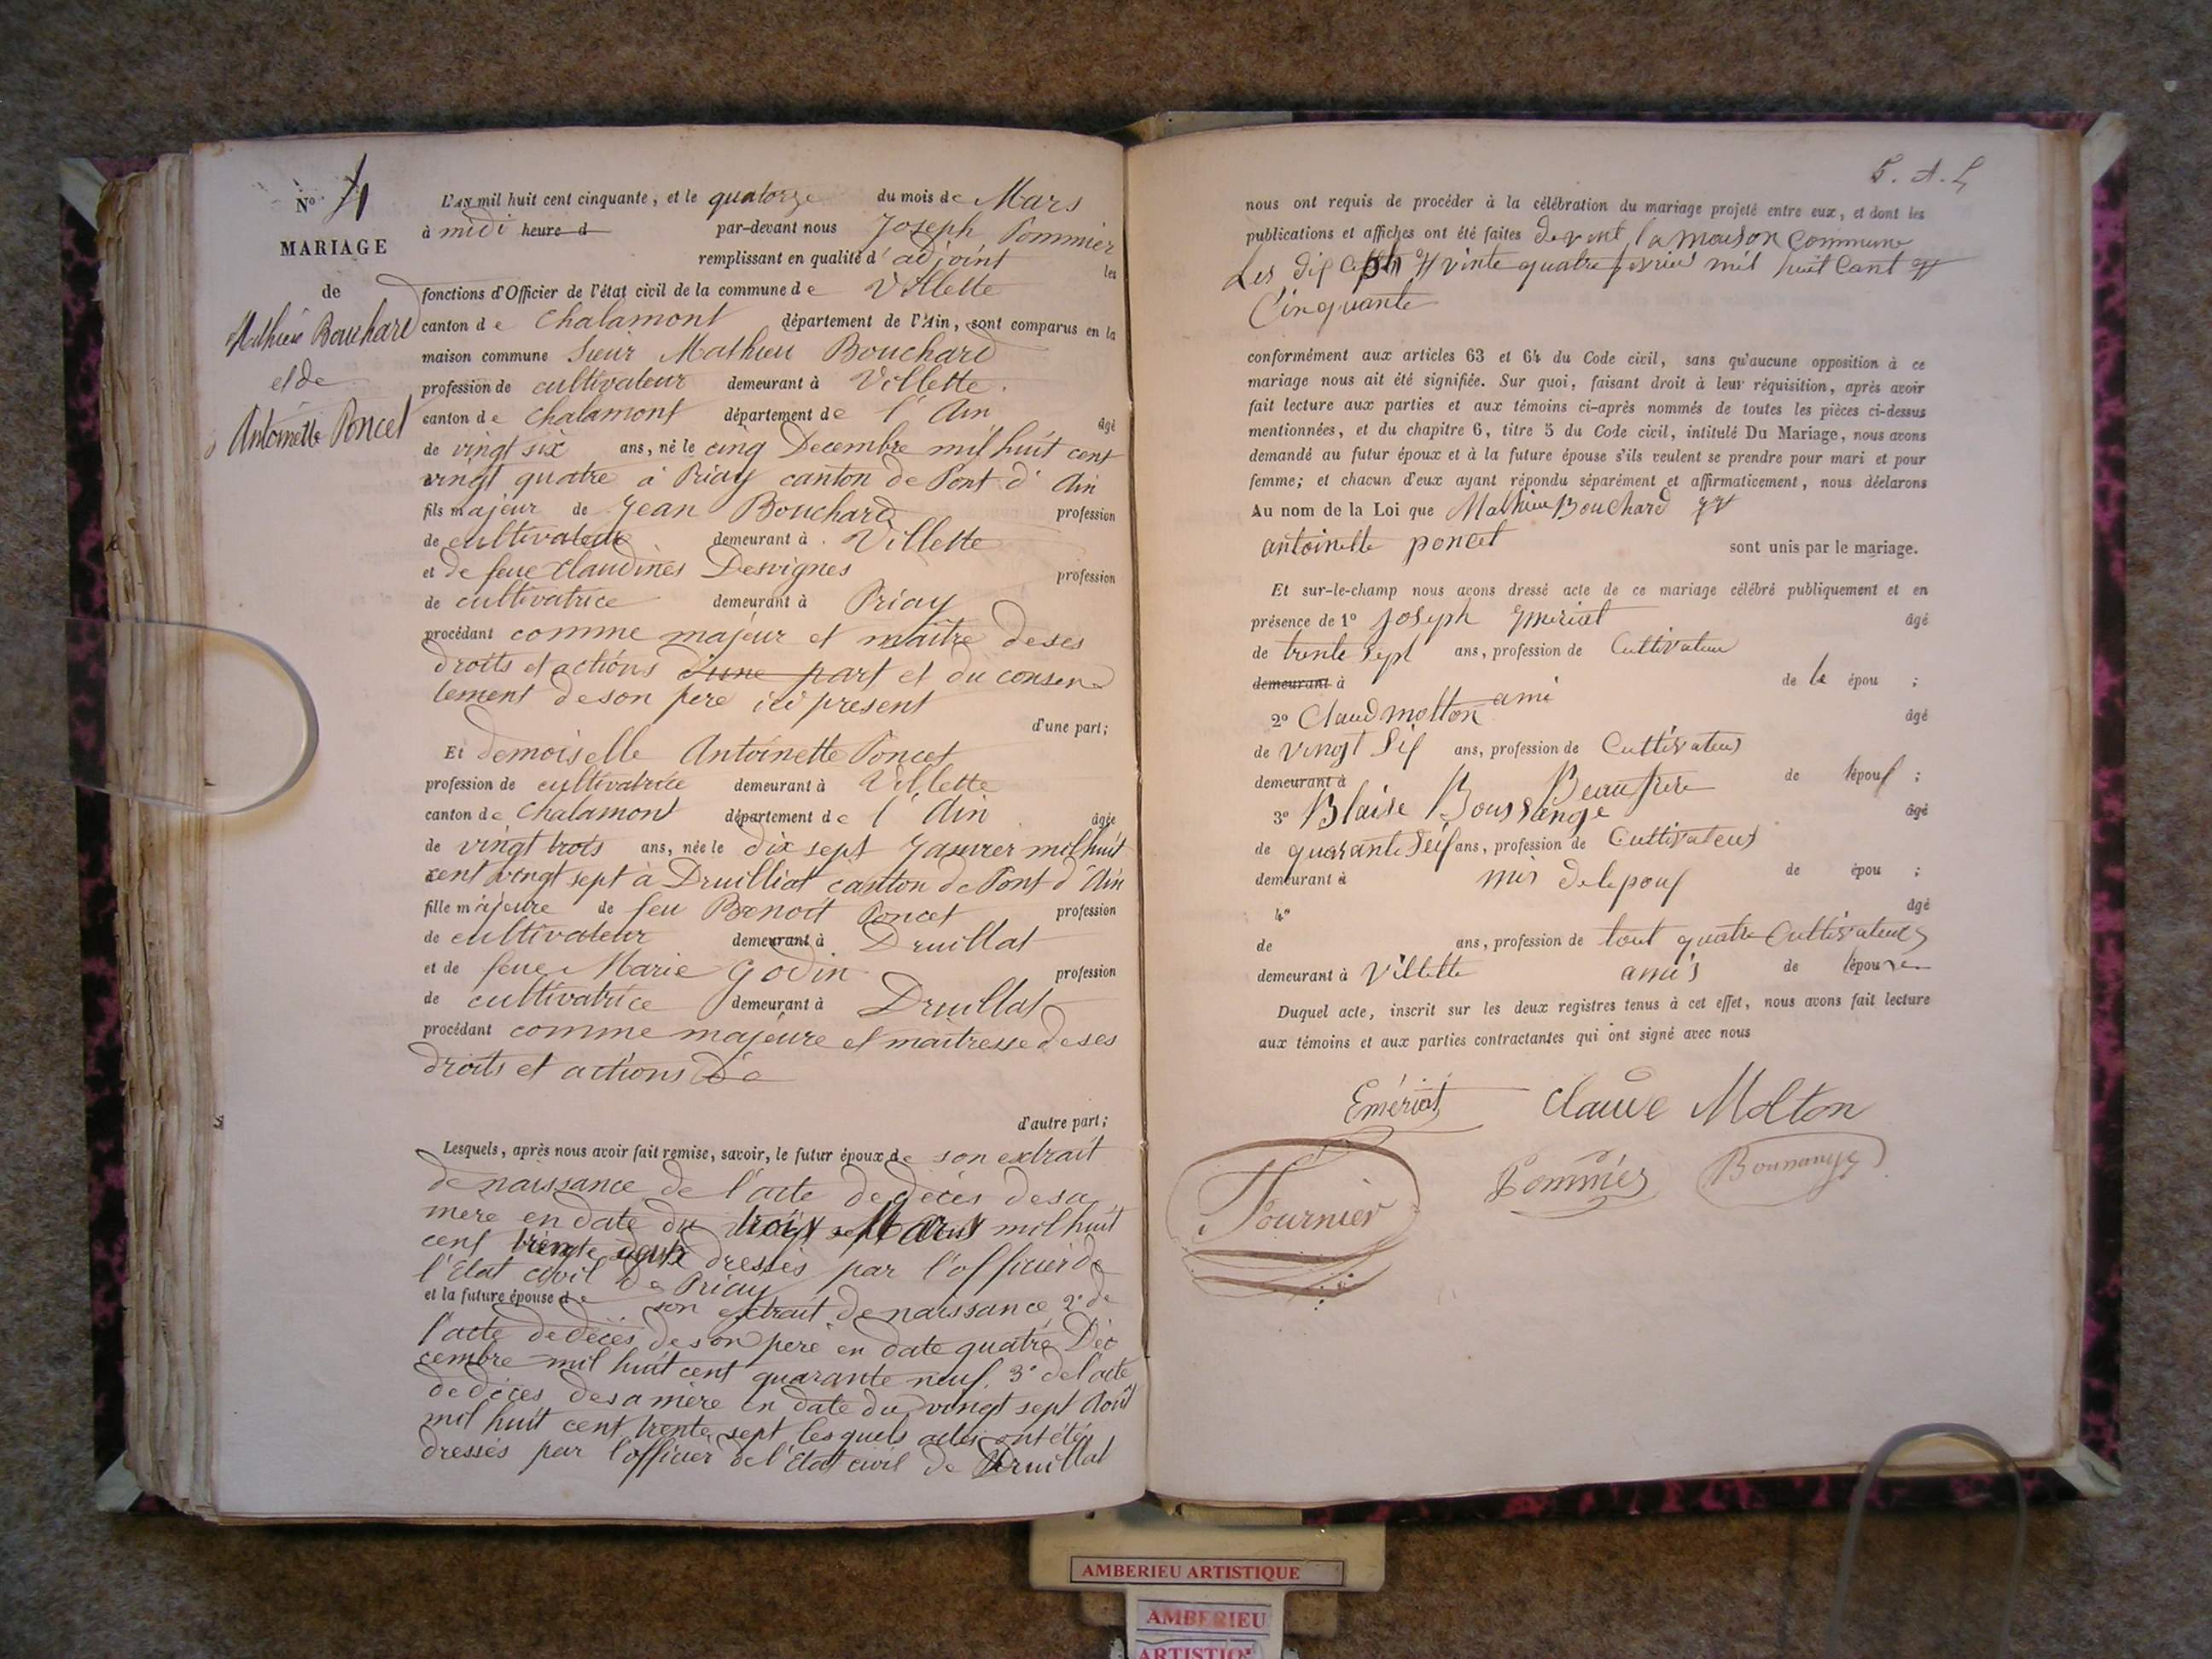 No 4
MARIAGE
de
Mathieu Bouchard
et de
Antoinette Poncet
L'AN mil huit cent cinquante, et le quatorze du mois de Mars
à midi heure d par-devant nous Joseph Pommier
remplissant en qualité d'adjoint les
fonctions d'Officier de l'état civil de la commune de Villette
canton de Chalamont département de l'Ain, sont comparus en la
maison commune Sieur Mathieu Bouchard
profession de cultivateur demeurant à Villette.
canton de Chalamont département de l'Ain âgé
de vingt six ans, né le cinq Decembre mil huit cent
vingt quatre à Priay canton de Pont d'Ain
fils majeur de Jean Bouchard profession
de cultivateur demeurant à Villette
et de feue Claudines Desvignes profession
de cultivatrice demeurant à Priay
procédant comme majeur et maitre de ses
droits et actions d'une part et du consen
tement de son pere ici present
d'une part;
Et demoiselle Antoinette Poncet
profession de cultivatrice demeurant à Villette
canton de Chalamont département de l'Ain âgée
de vingt trois ans, née le dix sept Janvier mil huit
cent vingt sept à Druilliat canton de Pont d'Ain
fille majeure de feu Benoit Poncet profession
de cultivateur demeurant à Druillat
et de feue Marie Godin profession
de cultivatrice demeurant à Druillat
procédant comme majeure et maitresse de ses
droits et actions de
d'autre part;
Lesquels, après nous avoir fait remise, savoir, le futur époux de son extrait
de naissance de l'acte de décès de sa
mere en date du trois Mars mil huit
cent trente dressés par l'officier de
l'Etat civil de Priay
et la future épouse de son extrait de naissance 2° de
l'acte de décès de son pere en date quatre Dé
cembre mil huit cent quarante neuf. 3° de l'acte
de décès de sa mère en date du vingt sept Août
mil huit cent trente sept lesquels actes ont été
dressés par l'officier de l'Etat civil de Druillat
nous ont requis de procéder à la célébration du mariage projeté entre eux, et dont les
publications et affiches ont été faites devent la maison Commune
Les vinte quatre fevrier mil huit Cent
Cinquante
conformément aux articles 63 et 64 du Code civil, sans qu'aucune opposition à ce
mariage nous ait été signifiée. Sur quoi, faisant droit à leur réquisition, après avoir
fait lecture aux parties et aux témoins ci-après nommés de toutes les pièces ci-dessus
mentionnées, et du chapitre 6, titre 5 du Code civil, intitulé Du Mariage, nous avons
demandé au futur époux et à la future épouse s'ils veulent se prendre pour mari et pour
femme; et chacun d'eux ayant répondu séparément et affirmativement, nous déclarons
Au nom de la Loi que Mathieu Bouchard
antoinette poncet sont unis par le mariage.
Et sur-le-champ nous avons dressé acte de ce mariage célébré publiquement et en
présence de 1° Joseph âgé
de trente Sept ans, profession de Cultivateur
demeurant à ami de le épou ;
2° Claud molton âgé
de vingt Sif ans, profession de Cultivateur
demeurant à Beaufrere de lépouf ;
3° Blaise Boussange âgé
de quarante Seif ans, profession de Cultivateur
demeurant à de lepouf de épou ;
4° âgé
de ans, profession de tout quatre Cultivateurs
demeurant à Villette amis de lépouse
Duquel acte, inscrit sur les deux registres tenus à cet effet, nous avons fait lecture
aux témoins et aux parties contractantes qui ont signé avec nous
Emériat Claude Molton
Fournier Pommier Boussange
AMBERIEU ARTISTIQUE
AMBERIEU
ARTISTIQ